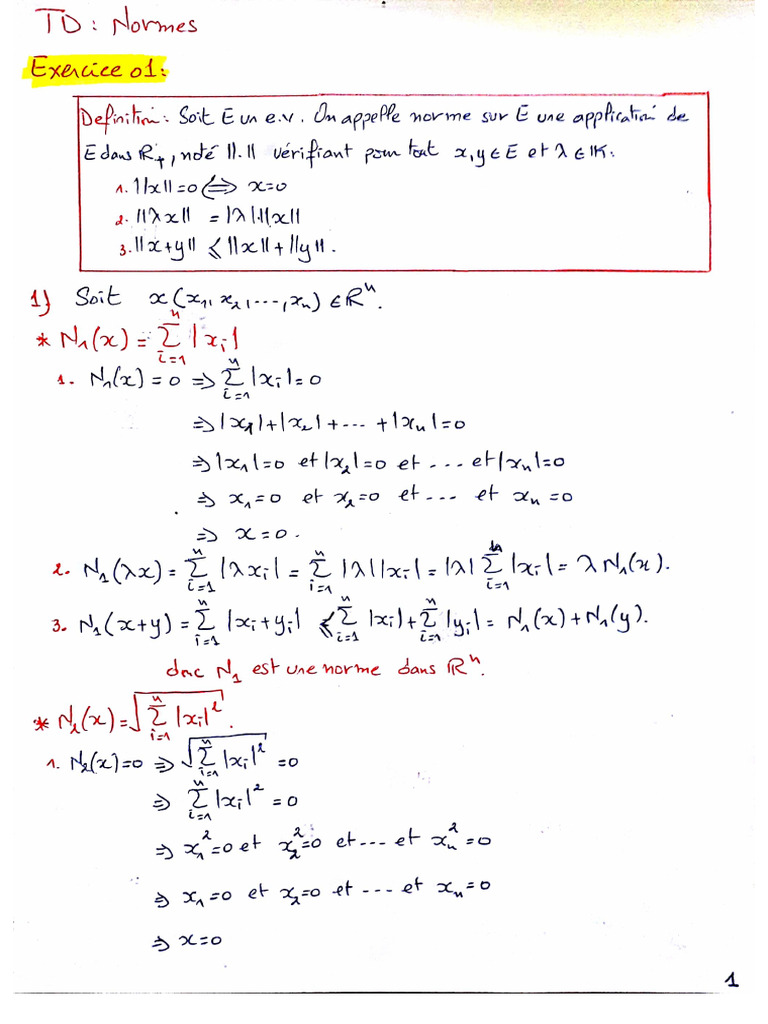 TD : Normes
Exercice 01:
Definition: Soit E un e.v. On appelle norme sur E une application de
E dans ℝ₊, noté ||.|| vérifiant pour tout x,y ∈ E et λ ∈ 𝕂:
1. ||x|| = 0 ⟺ x=0
2. ||λx|| = |λ|.||x||
3. ||x+y|| ≤ ||x|| + ||y||.
1) Soit x(x₁, x₂, ..., xₙ) ∈ ℝⁿ.
* N₁(x) = Σ_{i=1}^{n} |xᵢ|
1. N₁(x) = 0 ⇒ Σ_{i=1}^{n} |xᵢ| = 0
⇒ |x₁| + |x₂| + ... + |xₙ| = 0
⇒ |x₁| = 0 et |x₂| = 0 et ... et |xₙ| = 0
⇒ x₁ = 0 et x₂ = 0 et ... et xₙ = 0
⇒ x = 0.
2. N₁(λx) = Σ_{i=1}^{n} |λxᵢ| = Σ_{i=1}^{n} |λ||xᵢ| = |λ| Σ_{i=1}^{n} |xᵢ| = λ N₁(x).
3. N₁(x+y) = Σ_{i=1}^{n} |xᵢ + yᵢ| ≤ Σ_{i=1}^{n} |xᵢ| + Σ_{i=1}^{n} |yᵢ| = N₁(x) + N₁(y).
donc N₁ est une norme dans ℝⁿ.
* N₂(x) = √(Σ_{i=1}^{n} |xᵢ|²).
1. N₂(x) = 0 ⇒ √(Σ_{i=1}^{n} |xᵢ|²) = 0
⇒ Σ_{i=1}^{n} |xᵢ|² = 0
⇒ x₁² = 0 et x₂² = 0 et ... et xₙ² = 0
⇒ x₁ = 0 et x₂ = 0 et ... et xₙ = 0
⇒ x = 0
1